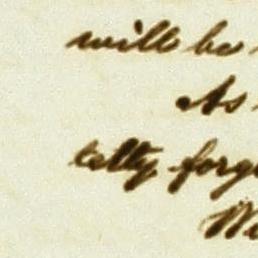 will be
As
tally forg
We